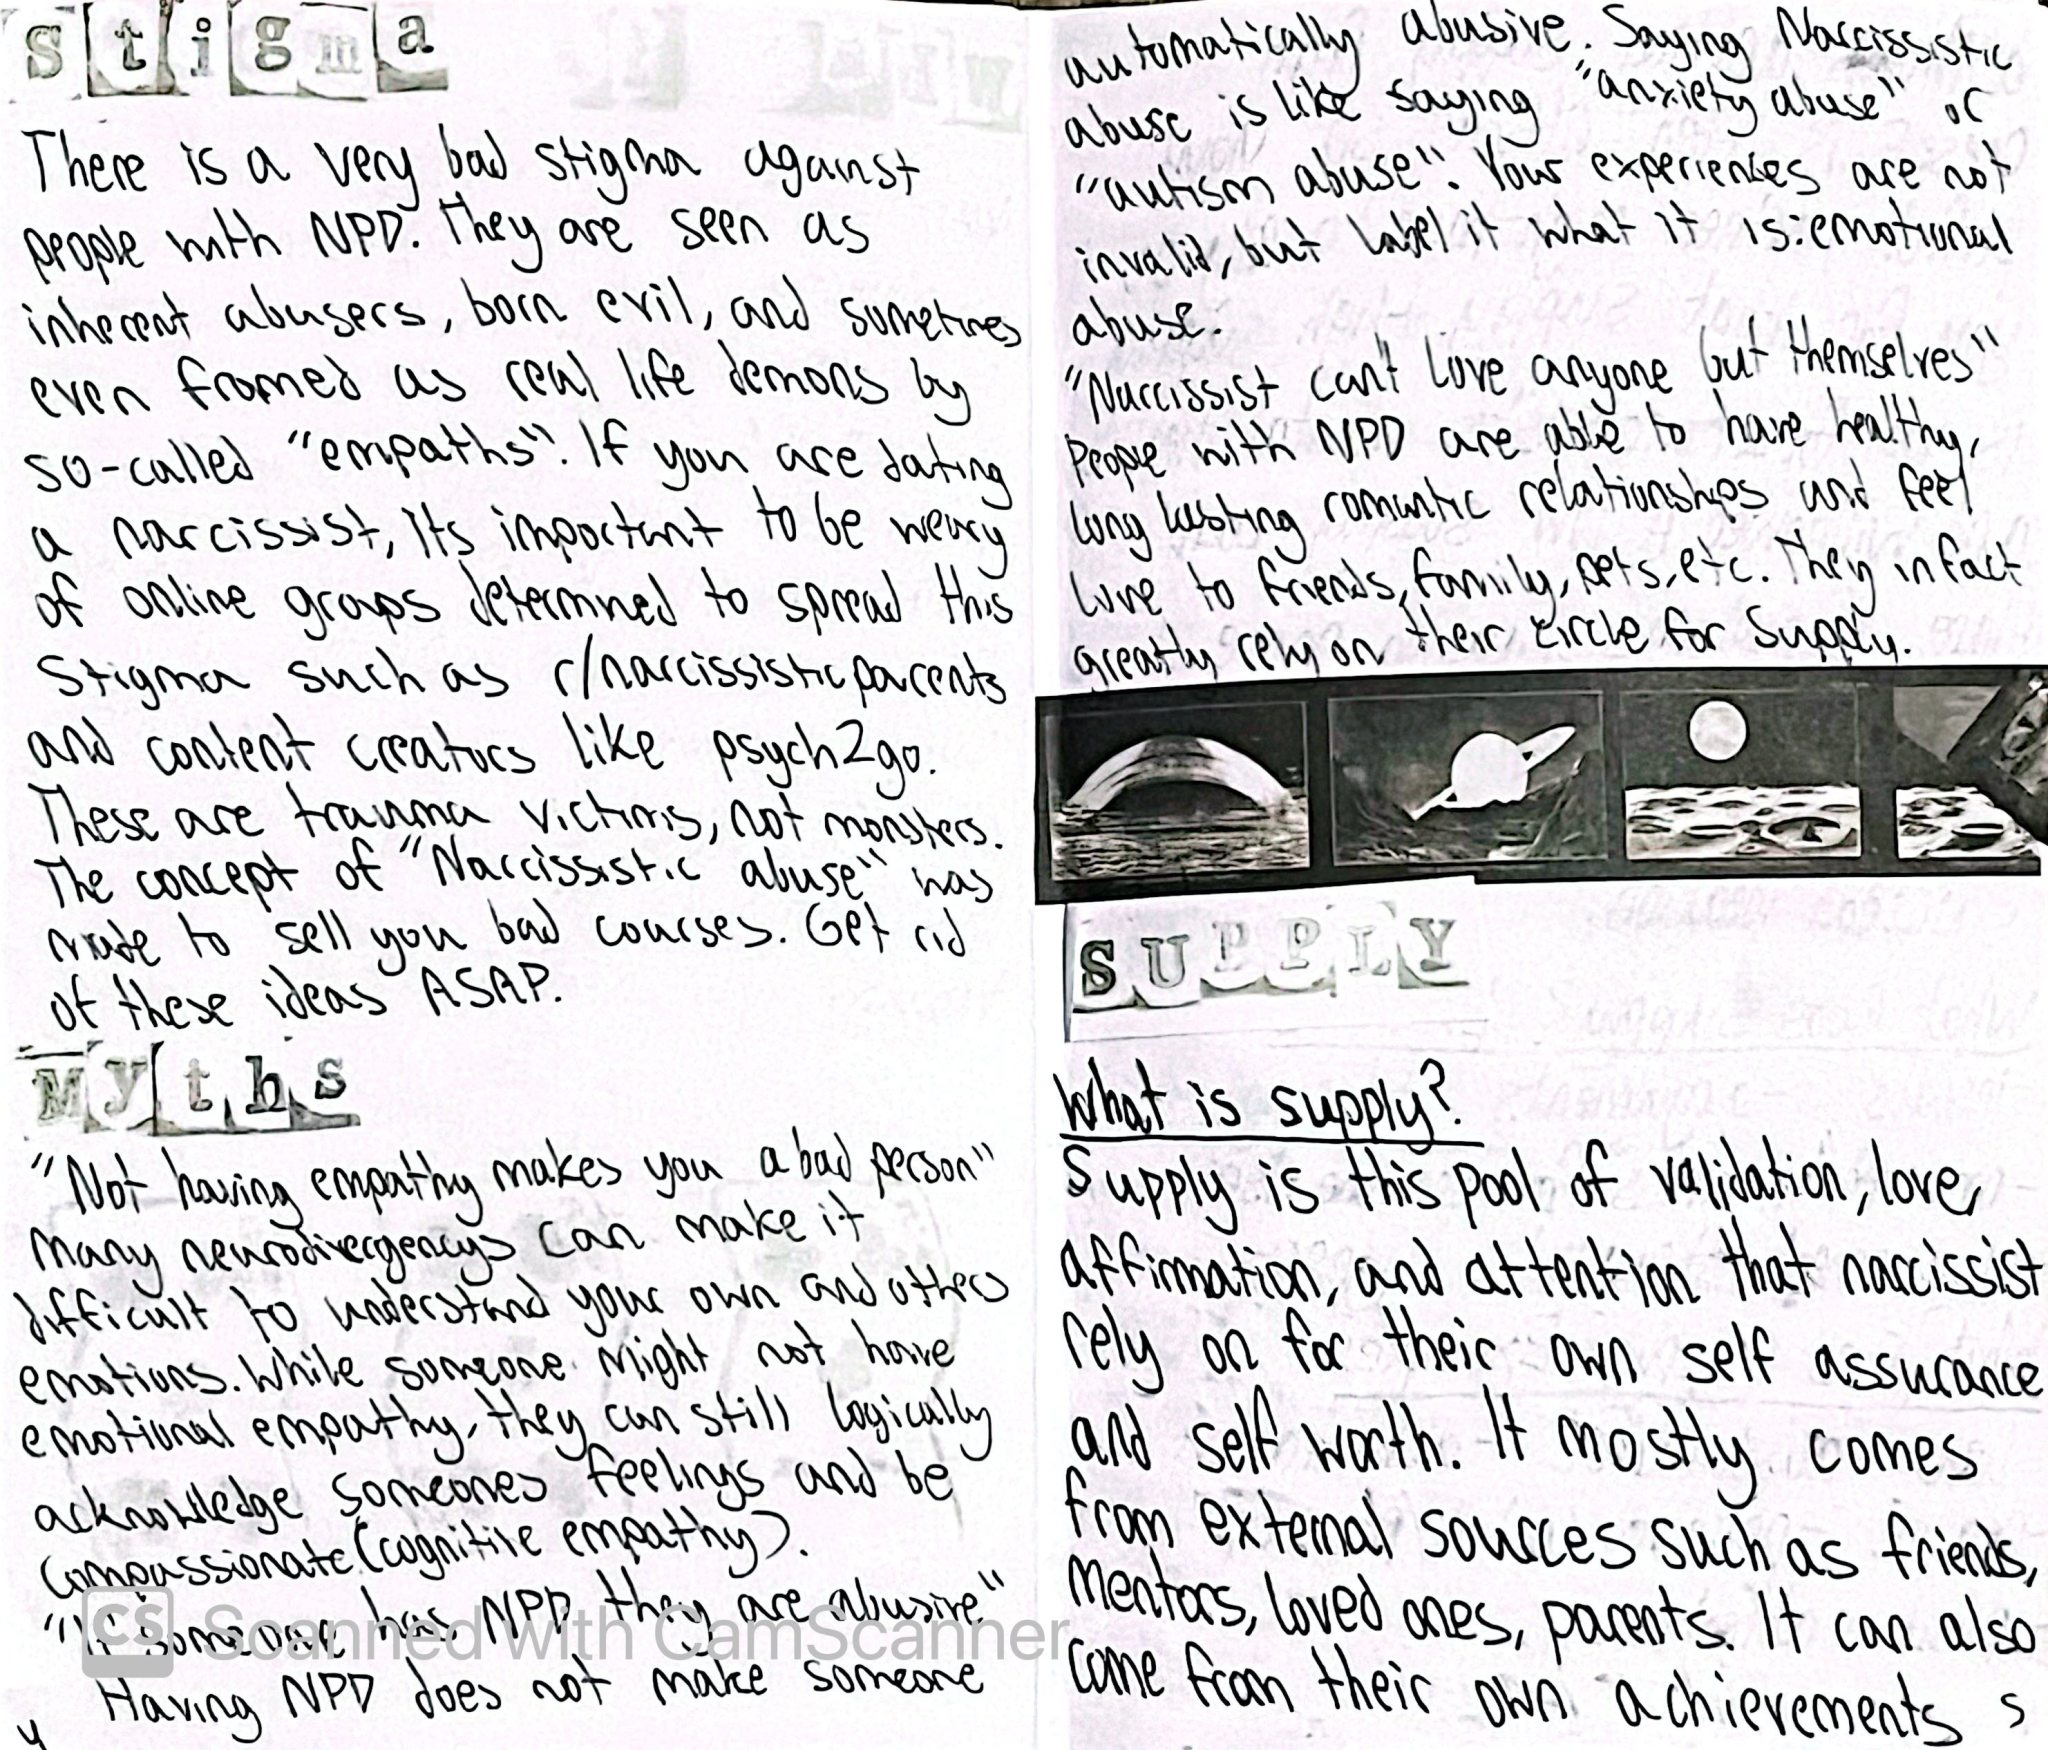 stigma
There is a very bad stigma against
people with NPD. They are seen as
inherent abusers, born evil, and sometimes
even framed as real life demons by
so-called "empaths". If you are dating
a narcissist, its important to be weary
of online groups determined to spread this
stigma such as r/narcissisticparents
and content creators like psych2go.
These are trauma victims, not monsters.
The concept of "Narcissistic abuse" was
made to sell you bad courses. Get rid
of these ideas ASAP.
Myths
"Not having empathy makes you a bad person"
Many neurodivergencys can make it
difficult to understand your own and others
emotions. While someone might not have
emotional empathy, they can still logically
acknowledge someones feelings and be
compassionate (cognitive empathy).
"If someone has NPD they are abusive"
Having NPD does not make someone
4
automatically abusive. Saying Narcissistic
abuse is like saying "anxiety abuse" or
"autism abuse". Your experiences are not
invalid, but label it what it is: emotional
abuse.
"Narcissist can't love anyone but themselves"
People with NPD are able to have healthy,
long lasting romantic relationships and feel
love to friends, family, pets, etc. They in fact
greatly rely on their circle for supply.
SUPPLY
What is supply?
Supply is this pool of validation, love,
affirmation, and attention that narcissist
rely on for their own self assurance
and self worth. It mostly comes
from external sources such as friends,
mentors, loved ones, parents. It can also
come from their own achievements
5
CS Scanned with CamScanner